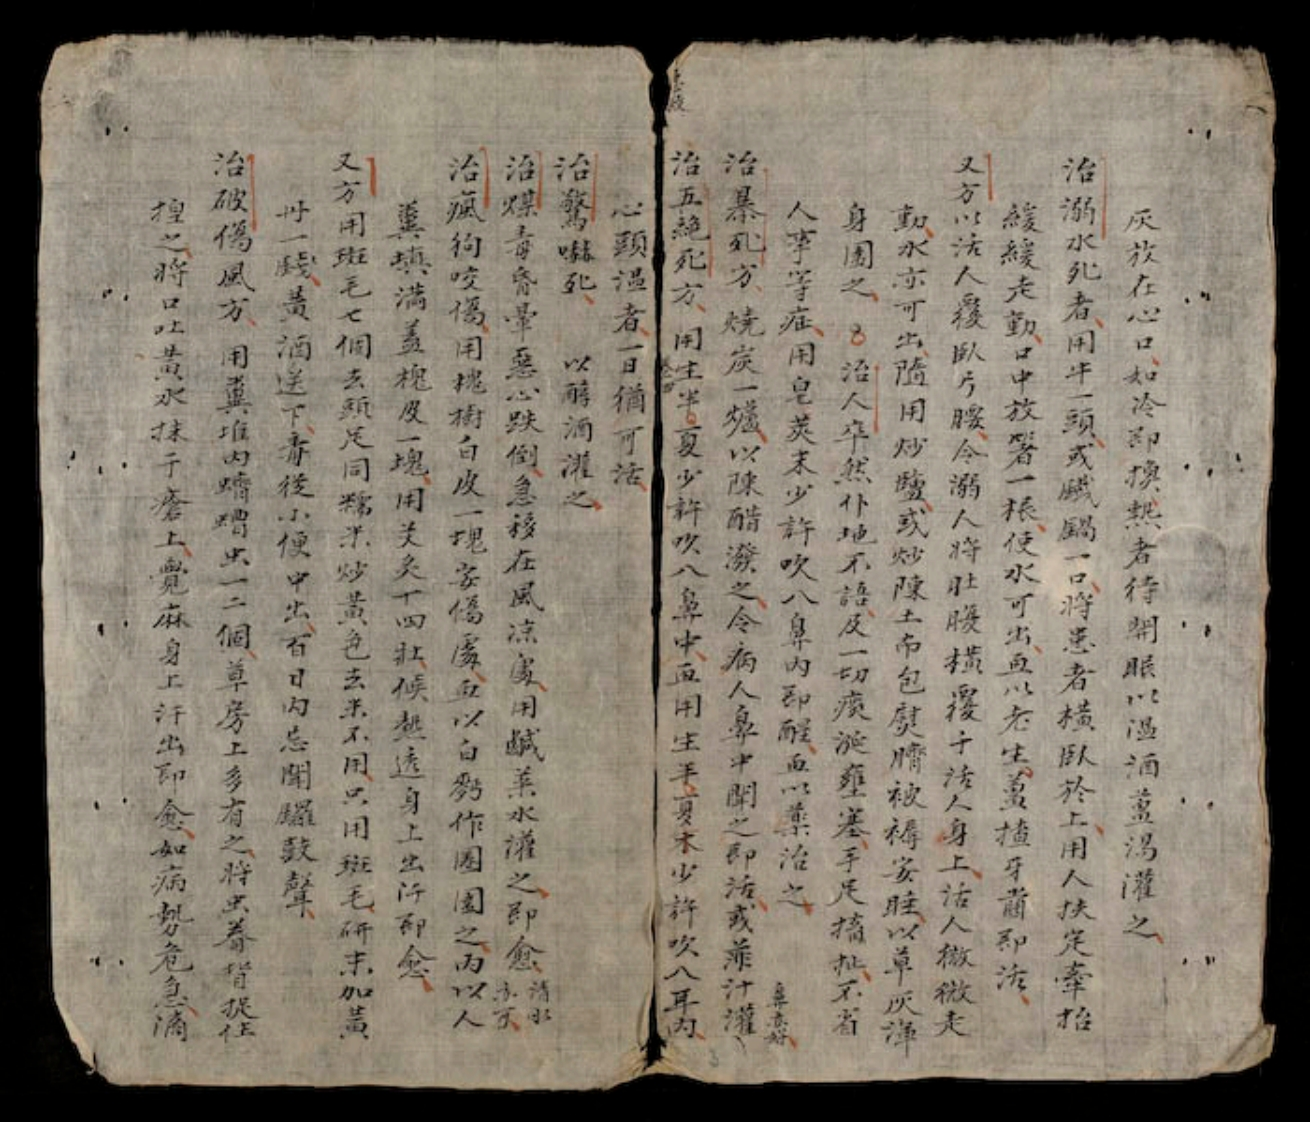 灰放在心口如冷即換熱者待開眼以溫酒薑湯灌之
治溺水死者用牛一頭或鐵鍋一口將患者橫臥於上用人扶定牽抬
緩緩走動口中放箸一根使水可出並以老生薑揸牙菌即活
又方以活人覆臥彎腰令溺人將肚腹橫覆于活人身上活人微微走
動水亦可出隨用炒鹽或炒陳土布包熨臍被褥安睡以草灰渾
身圍之 治人卒然仆地不語及一切痰涎壅塞手足搐扯不省
人事等症用皂莢末少許吹入鼻內即醒並以藥治之
治暴死方燒炭一爐以陳醋潑之令病人鼻中聞之即活或韭汁灌
鼻亦好
治五絕死方用生半夏少許吹入鼻中並用生半夏末少許吹入耳內
心頭溫者一日猶可活
治驚嚇死 以醇酒灌之
治煤毒昏暈惡心跌倒急移在風涼處用鹹菜水灌之即愈
清水亦可
治瘋狗咬傷用槐樹白皮一塊安傷處並以白麪作圈圍之內以人
糞填滿蓋槐皮一塊用艾灸十四壯候熱透身上出汗即愈
又方用斑毛七個去頭足同糯米炒黃色去米不用只用斑毛研末加黃
丹一錢黃酒送下毒從小便中出百日內忌聞鑼鼓聲
治破傷風方 用糞堆內蠐螬虫一二個草房上多有之將虫脊背捉住
捏之將口吐黃水抹于瘡上覺麻身上汗出即愈如病勢危急滴